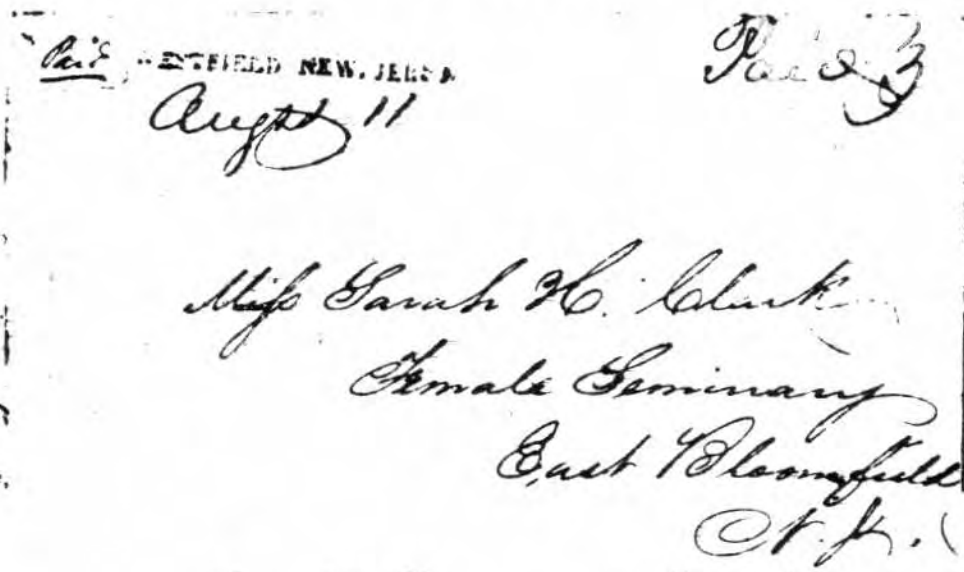 Paid WESTFIELD NEW. JERSEY Paid 3
Augst 11
Miss Sarah H. Clark
Female Seminary
East Bloomfield
N. Y.